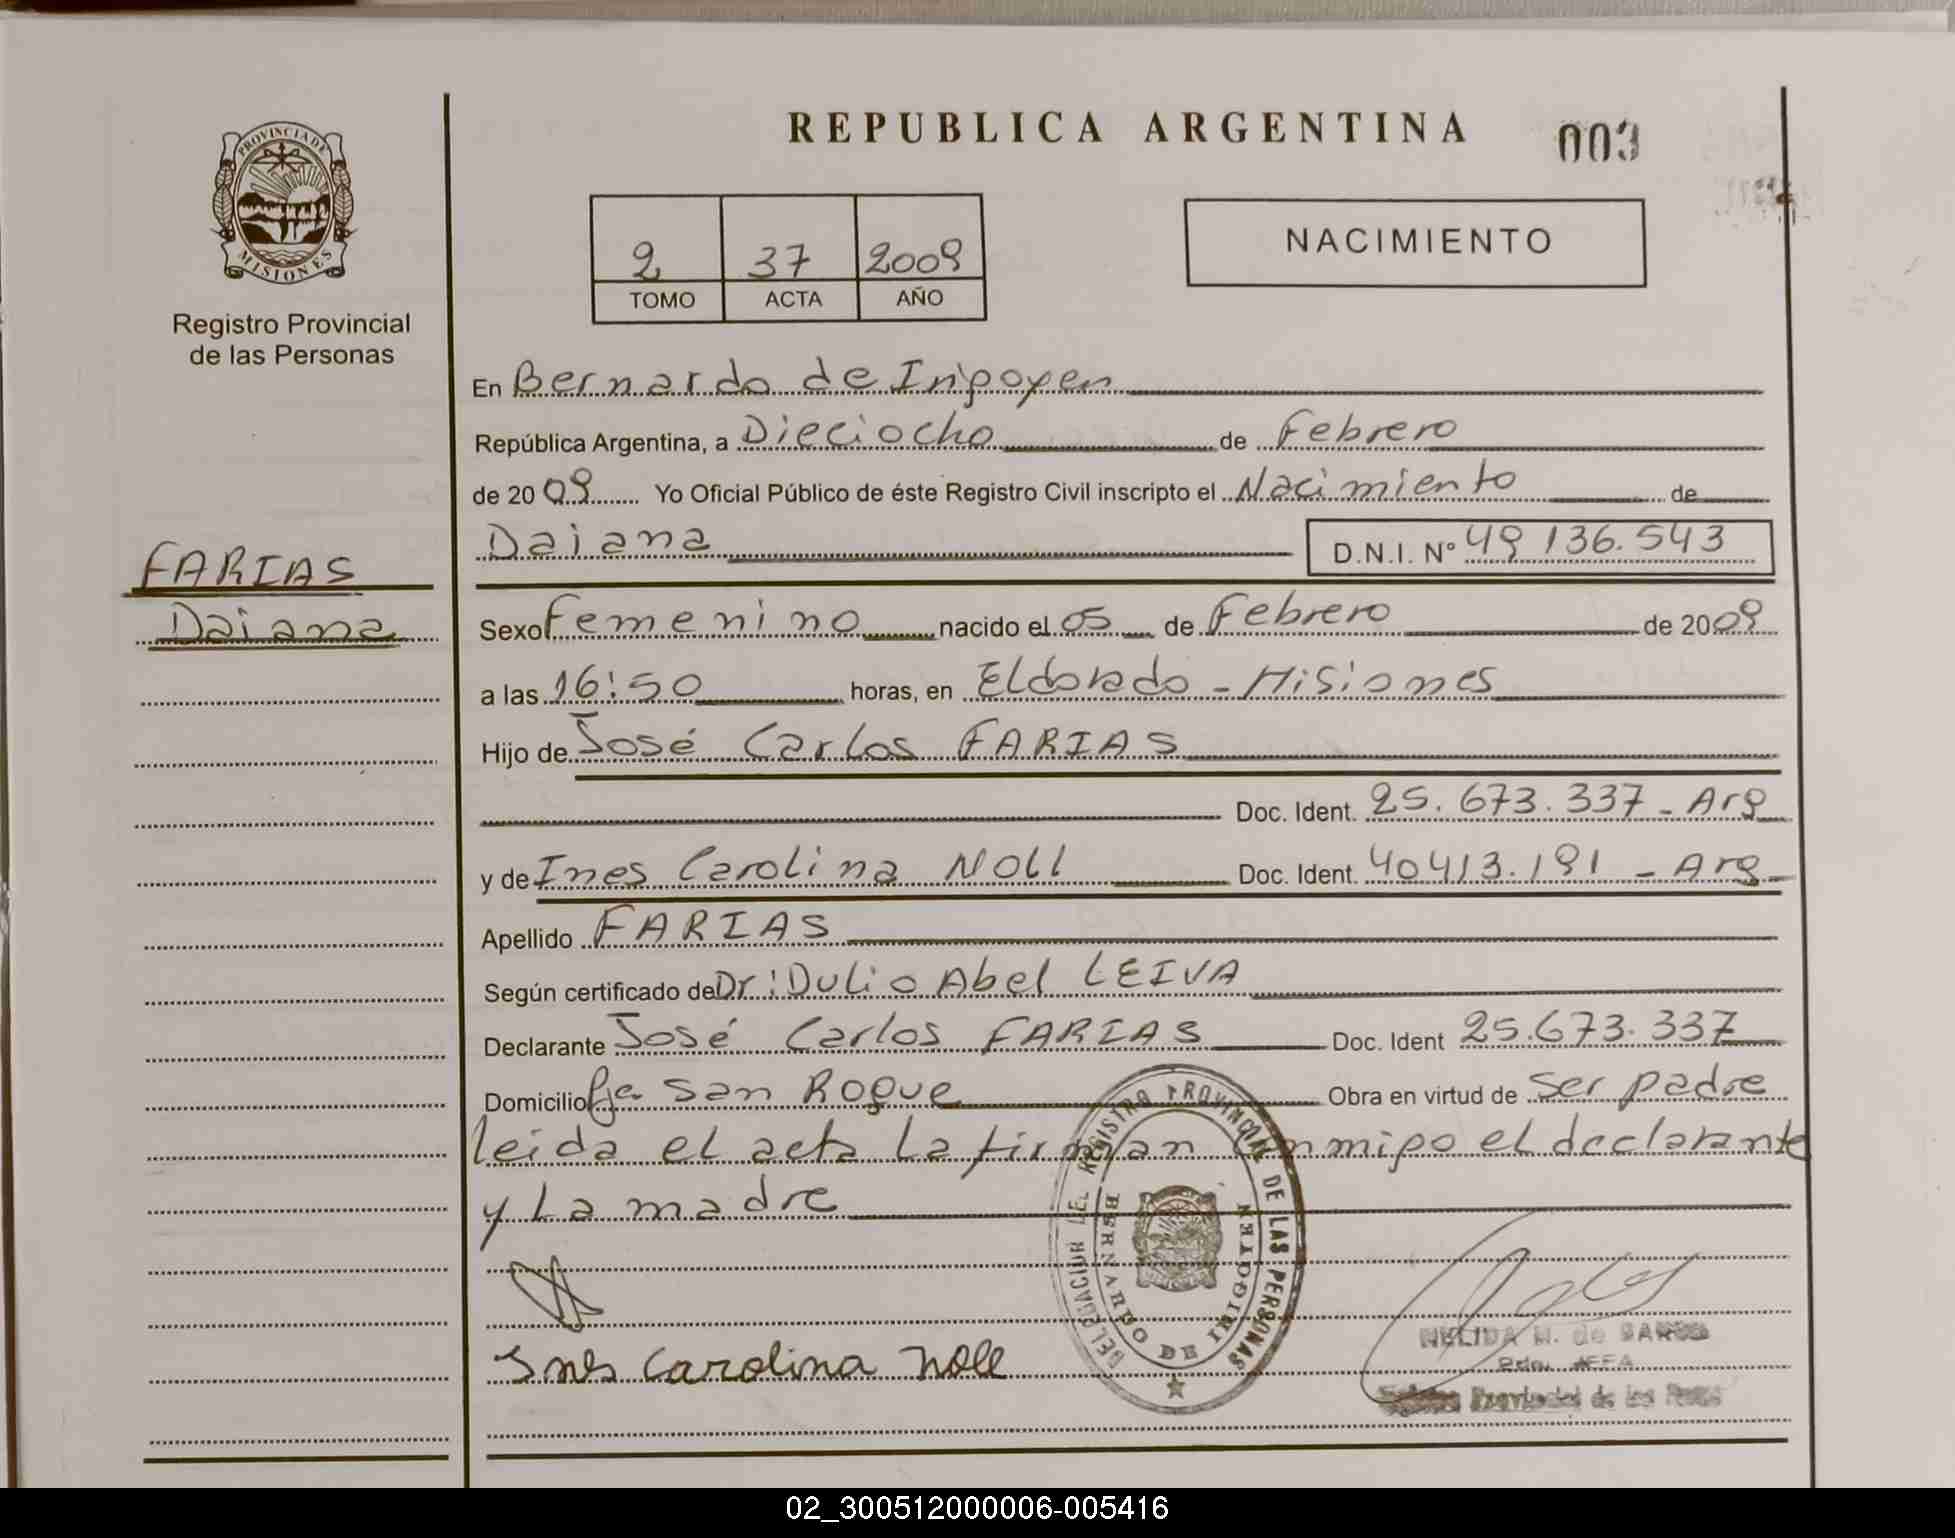 REPUBLICA ARGENTINA
003
PROVINCIA DE
MISIONES
Registro Provincial
de las Personas
2 37 2009
TOMO ACTA AÑO
NACIMIENTO
En Bernardo de Irigoyen
República Argentina, a Dieciocho de Febrero
de 2009 Yo Oficial Público de éste Registro Civil inscripto el Nacimiento de
Daiana D.N.I. Nº 49 136.543
FARIAS
Daiana
Sexo Femenino nacido el 05 de Febrero de 2009
a las 16:50 horas, en Eldorado - Misiones
Hijo de José Carlos FARIAS
Doc. Ident. 25.673.337 - Arg
y de Ines Carolina NOLL Doc. Ident. 40413.191 - Arg
Apellido FARIAS
Según certificado de Dr: Dulio Abel LEIVA
Declarante José Carlos FARIAS Doc. Ident 25.673.337
Domicilio Pje San Roque Obra en virtud de ser padre
leida el acta la firman conmigo el declarante
y La madre
DELEGACION DEL REGISTRO PROVINCIAL DE LAS PERSONAS
BERNARDO DE IRIGOYEN
Ines Carolina Noll
NELIDA de
Provincial de las
02_300512000006-005416